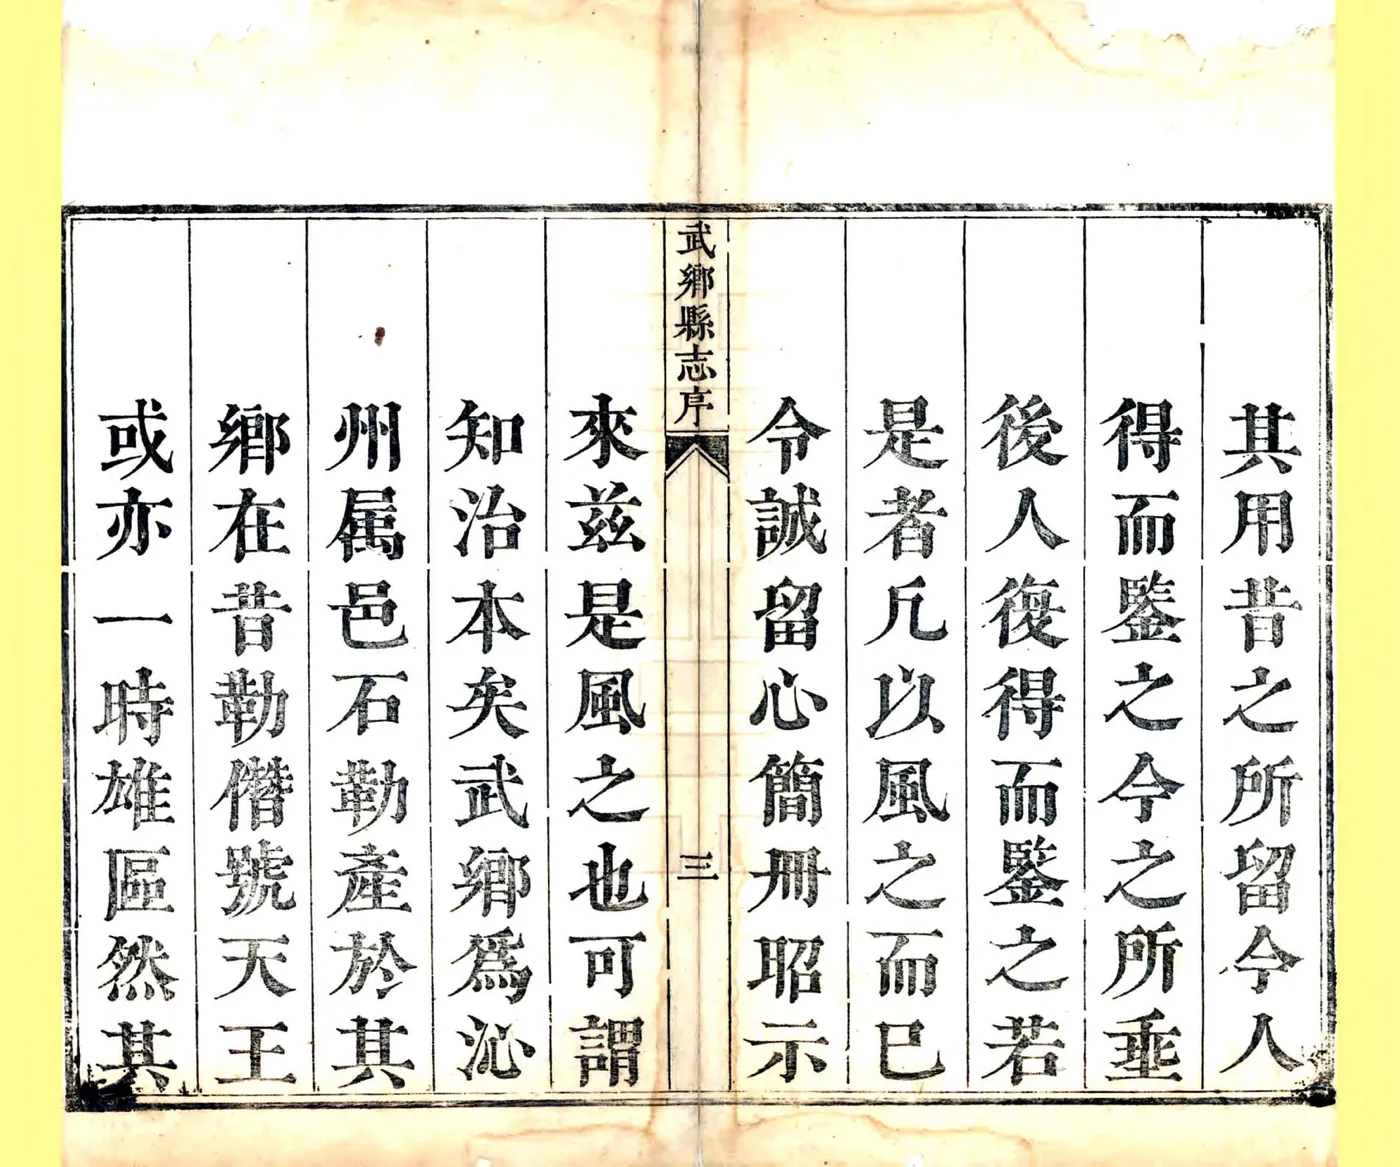 其用昔之所留今人
得而鑒之今之所垂
後人復得而鑒之若
是者凡以風之而已
令誠留心簡冊昭示
武鄉縣志序
三
來茲是風之也可謂
知治本矣武鄉爲沁
州属邑石勒產於其
鄉在昔勒僭號天王
或亦一時雄區然其